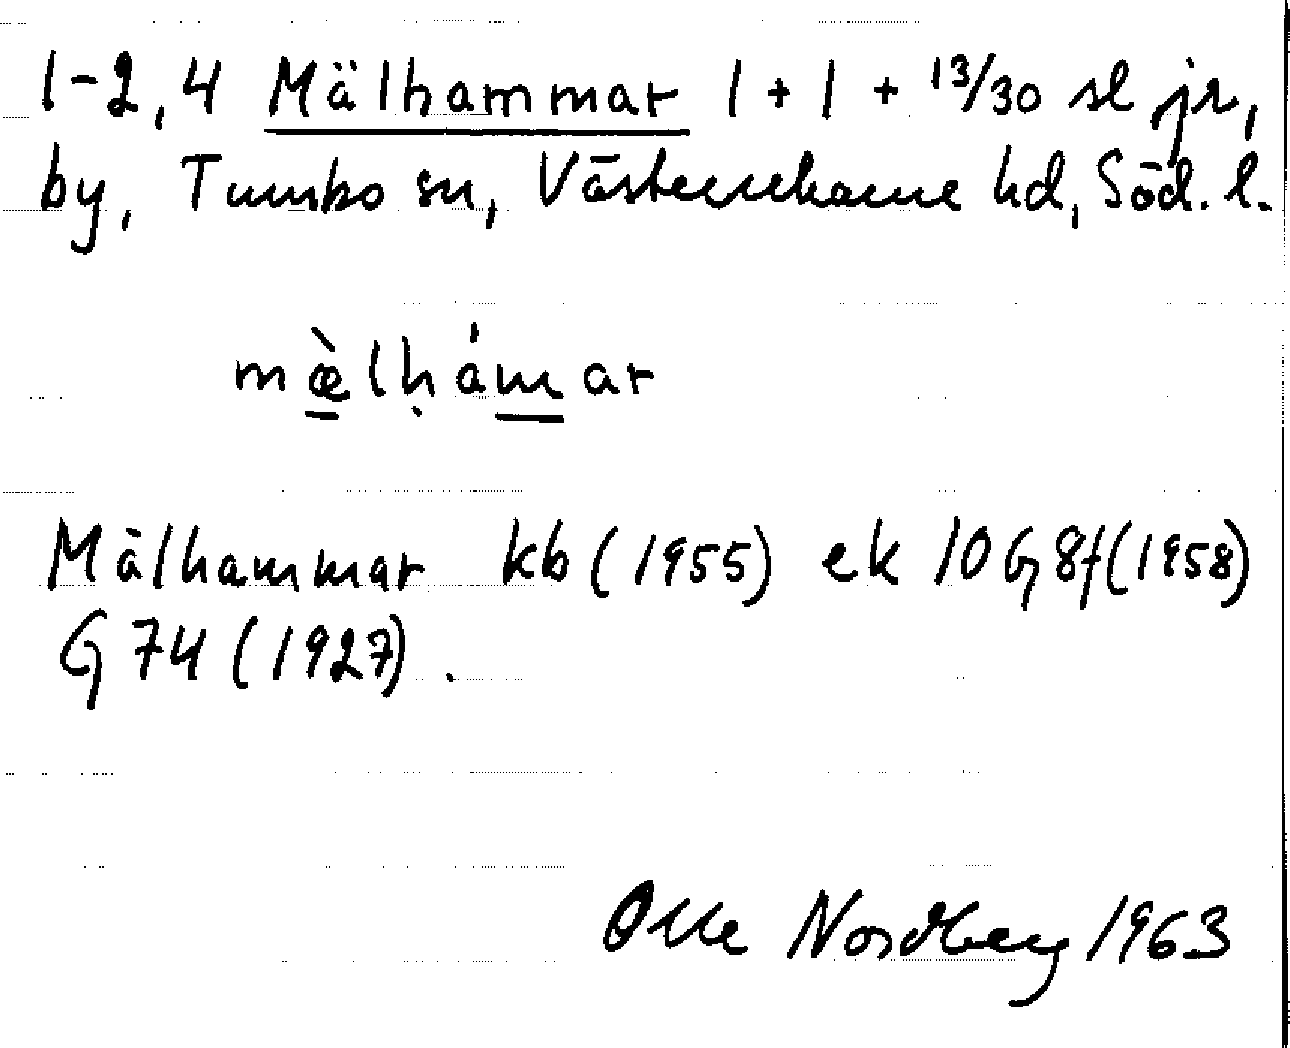 1-2, 4 Mälhammar 1 + 1 + 13/30 sl jr,
by, Tumbo sn, Västerrekarne hd, Söd. l.
mæ̠̀lḥám̠ar
Mälhammar kb (1955) ek 10G8f (1958)
G 74 (1927).
Olle Nordberg 1963